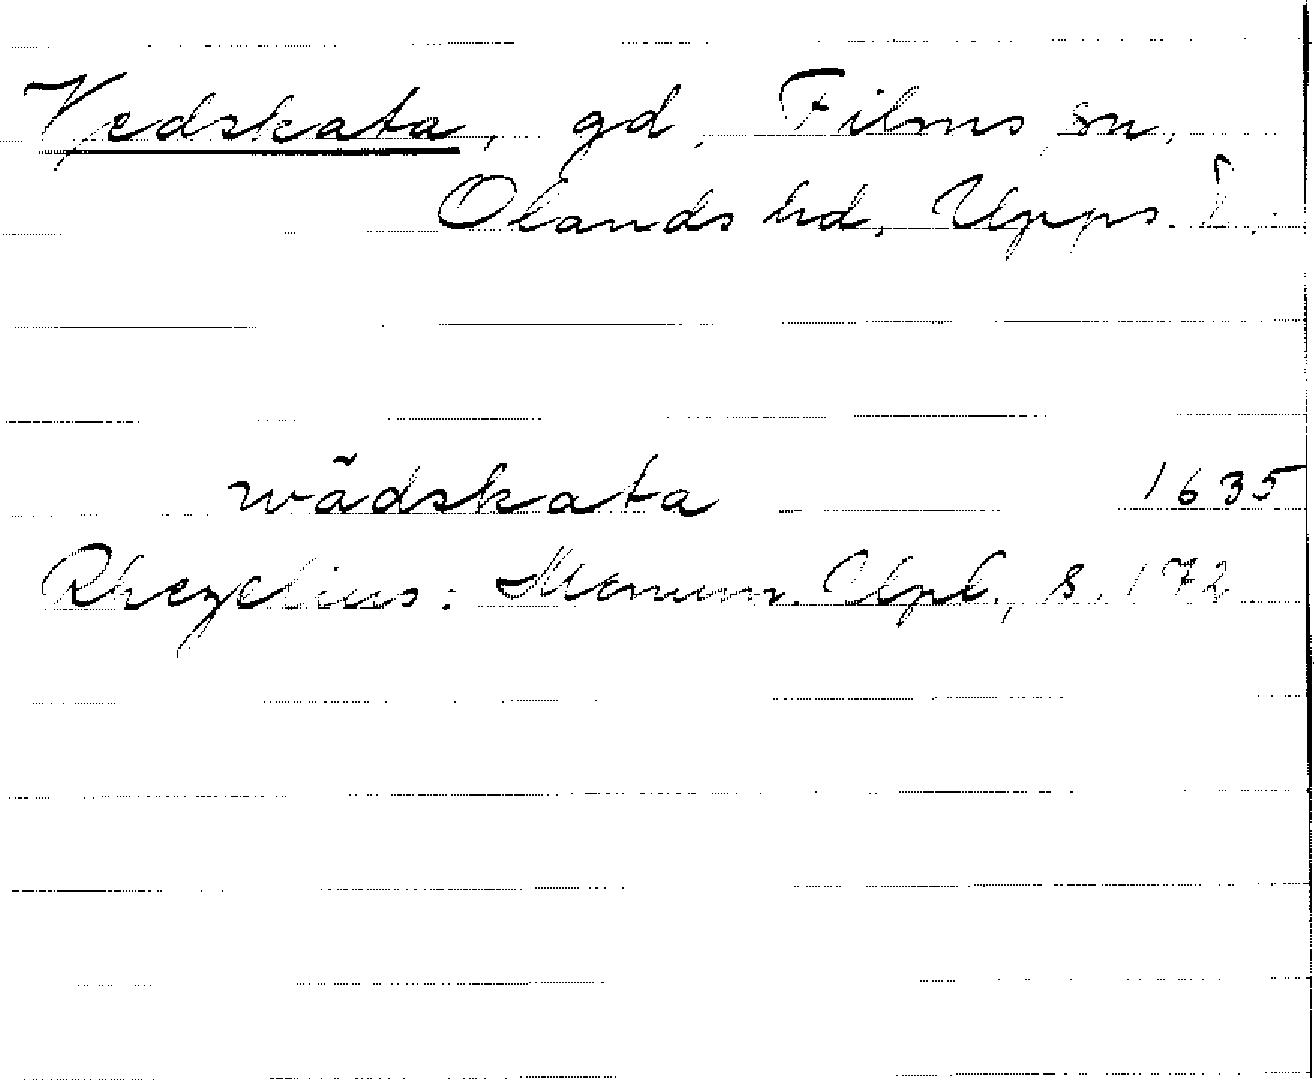 Vedskata, gd, Films sn,
Olands hd, Upps. l.
wädskata 1635
Rhezelius: Monum. Upl., s. 172